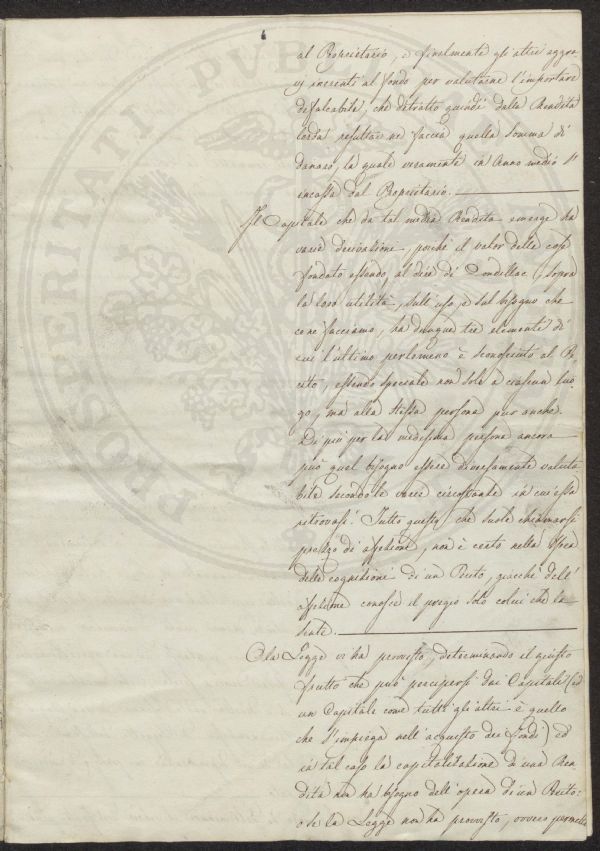 al Proprietario, e finalmente gli altri aggra-
vj inerenti al fondo per valutarne l'importare
defalcabile, che detratto quindi dalla Rendita
lorda resultar ne faccia quella somma di
danaro, la quale veramente in Anno medio s'
incassa dal Proprietario.
Il Capitale che da tal media Rendita emerge ha
varie derivazione, poichè il valor delle cose
fondato essendo, al dire di Condillac, sopra
la loro utilità, sull'uso, e sul bisogno che
ne facciamo, ha dunque tre elementi di
cui l'ultimo perlomeno è sconosciuto al Pe-
rito, essendo speciale non solo a ciascun luo-
go, mà alla stessa persona pur anche.
Di più per la medesima persona ancora
può quel bisogno essere diversamente valuta-
bile secondo le varie circostanze in cui essa
ritrovasi. Tutto questo, che suole chiamarsi
prezzo di affezione, non è certo nella sfera
delle cognizioni di un Perito, giacchè dell'
affezione conosce il pregio solo colui che la
sente.
O la Legge vi ha provvisto, determinando il giusto
frutto che può percipersi dai Capitali (ed
un Capitale come tutti gli altri è quello
che s'impiega nell'acquisto dei Fondi) ed
in tal caso la capitalizzazione di una Ren-
dita non ha bisogno dell'opera di un Perito:
o se la Legge non ha provvisto, ovvero permette
PROSPERIT TI PVBL